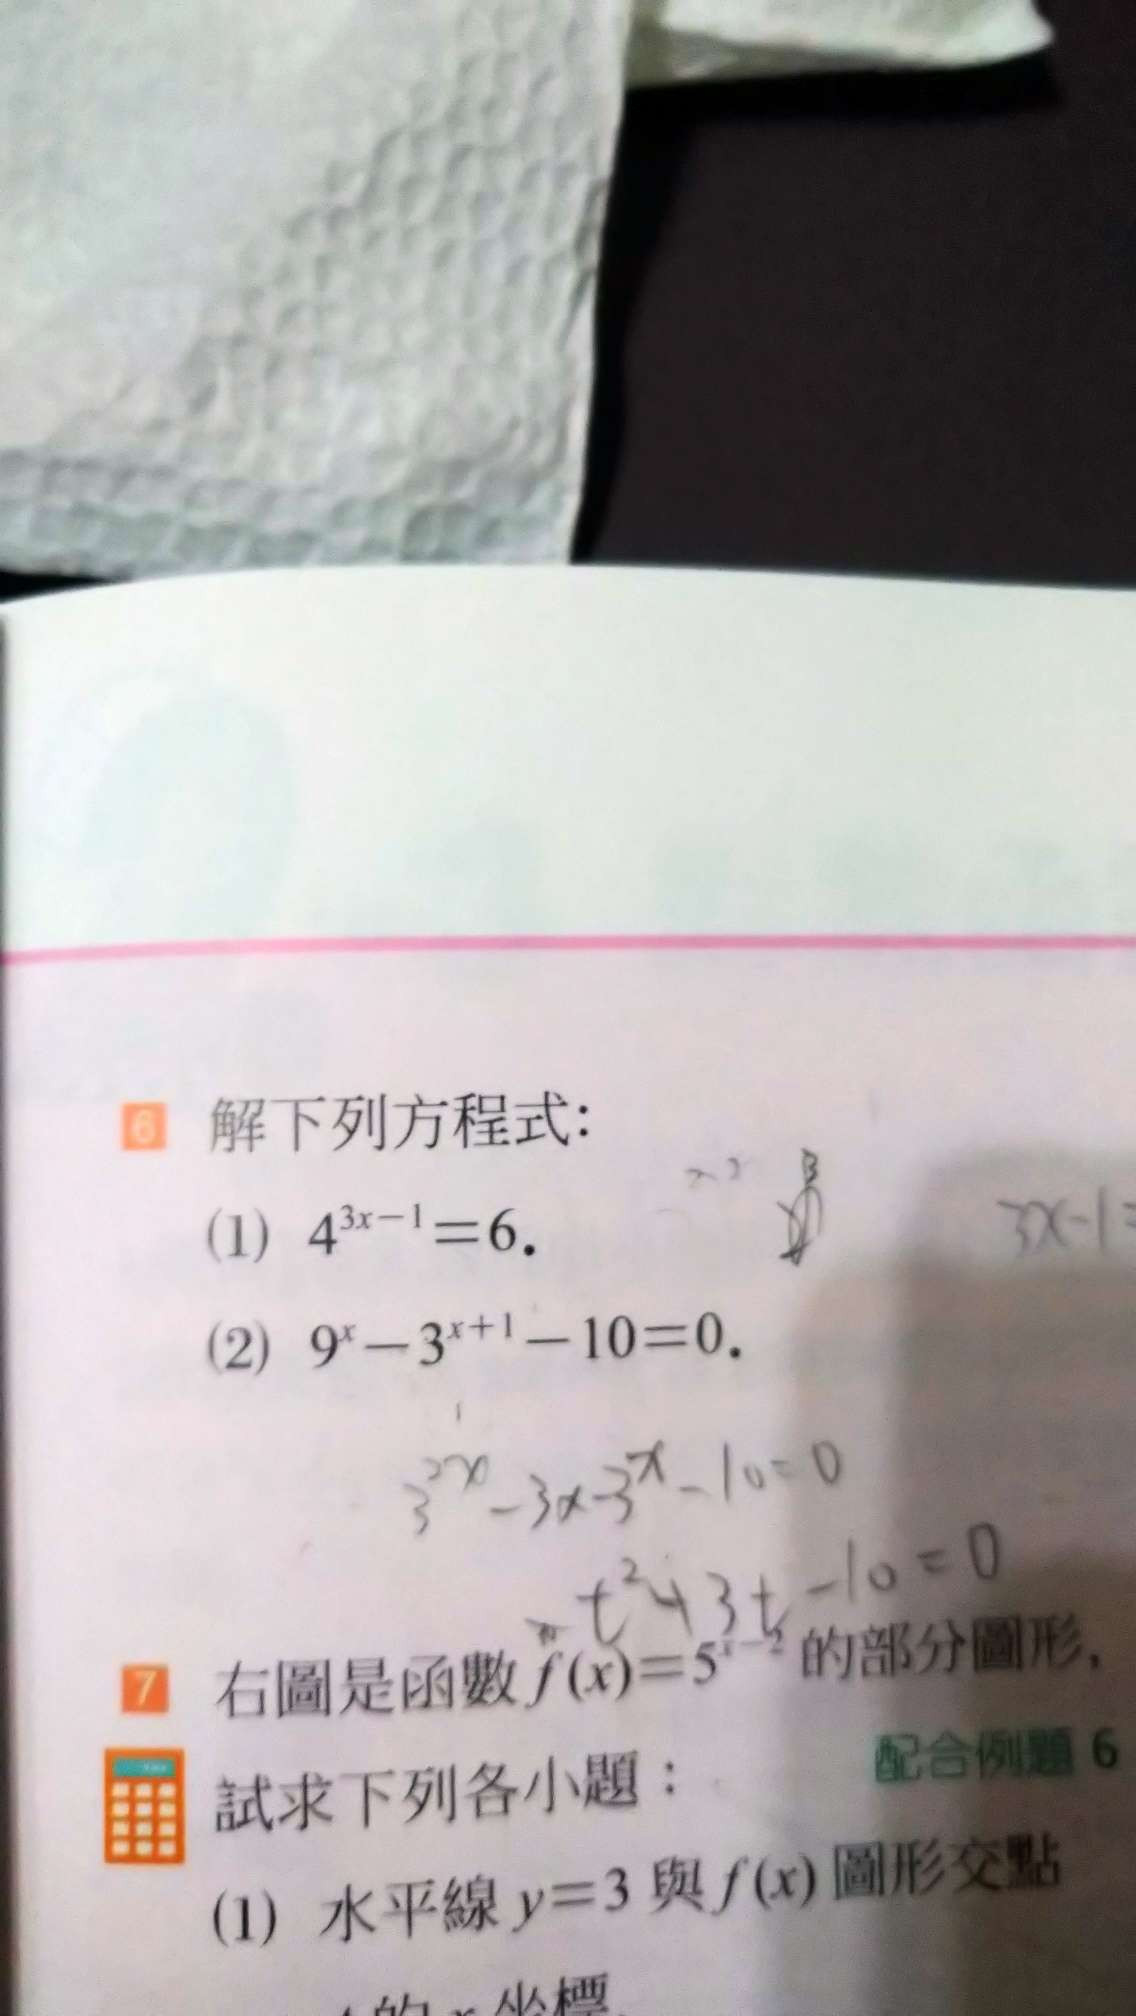 6 解下列方程式:
(1) 4^{3x-1}=6.
3x-1=
(2) 9^x-3^{x+1}-10=0.
3^{2x}-3x-3^x-10=0
t²+3t-10=0
7 右圖是函數 f(x)=5^{x-2} 的部分圖形,
配合例題 6
試求下列各小題：
(1) 水平線 y=3 與 f(x) 圖形交點
的 x 坐標.